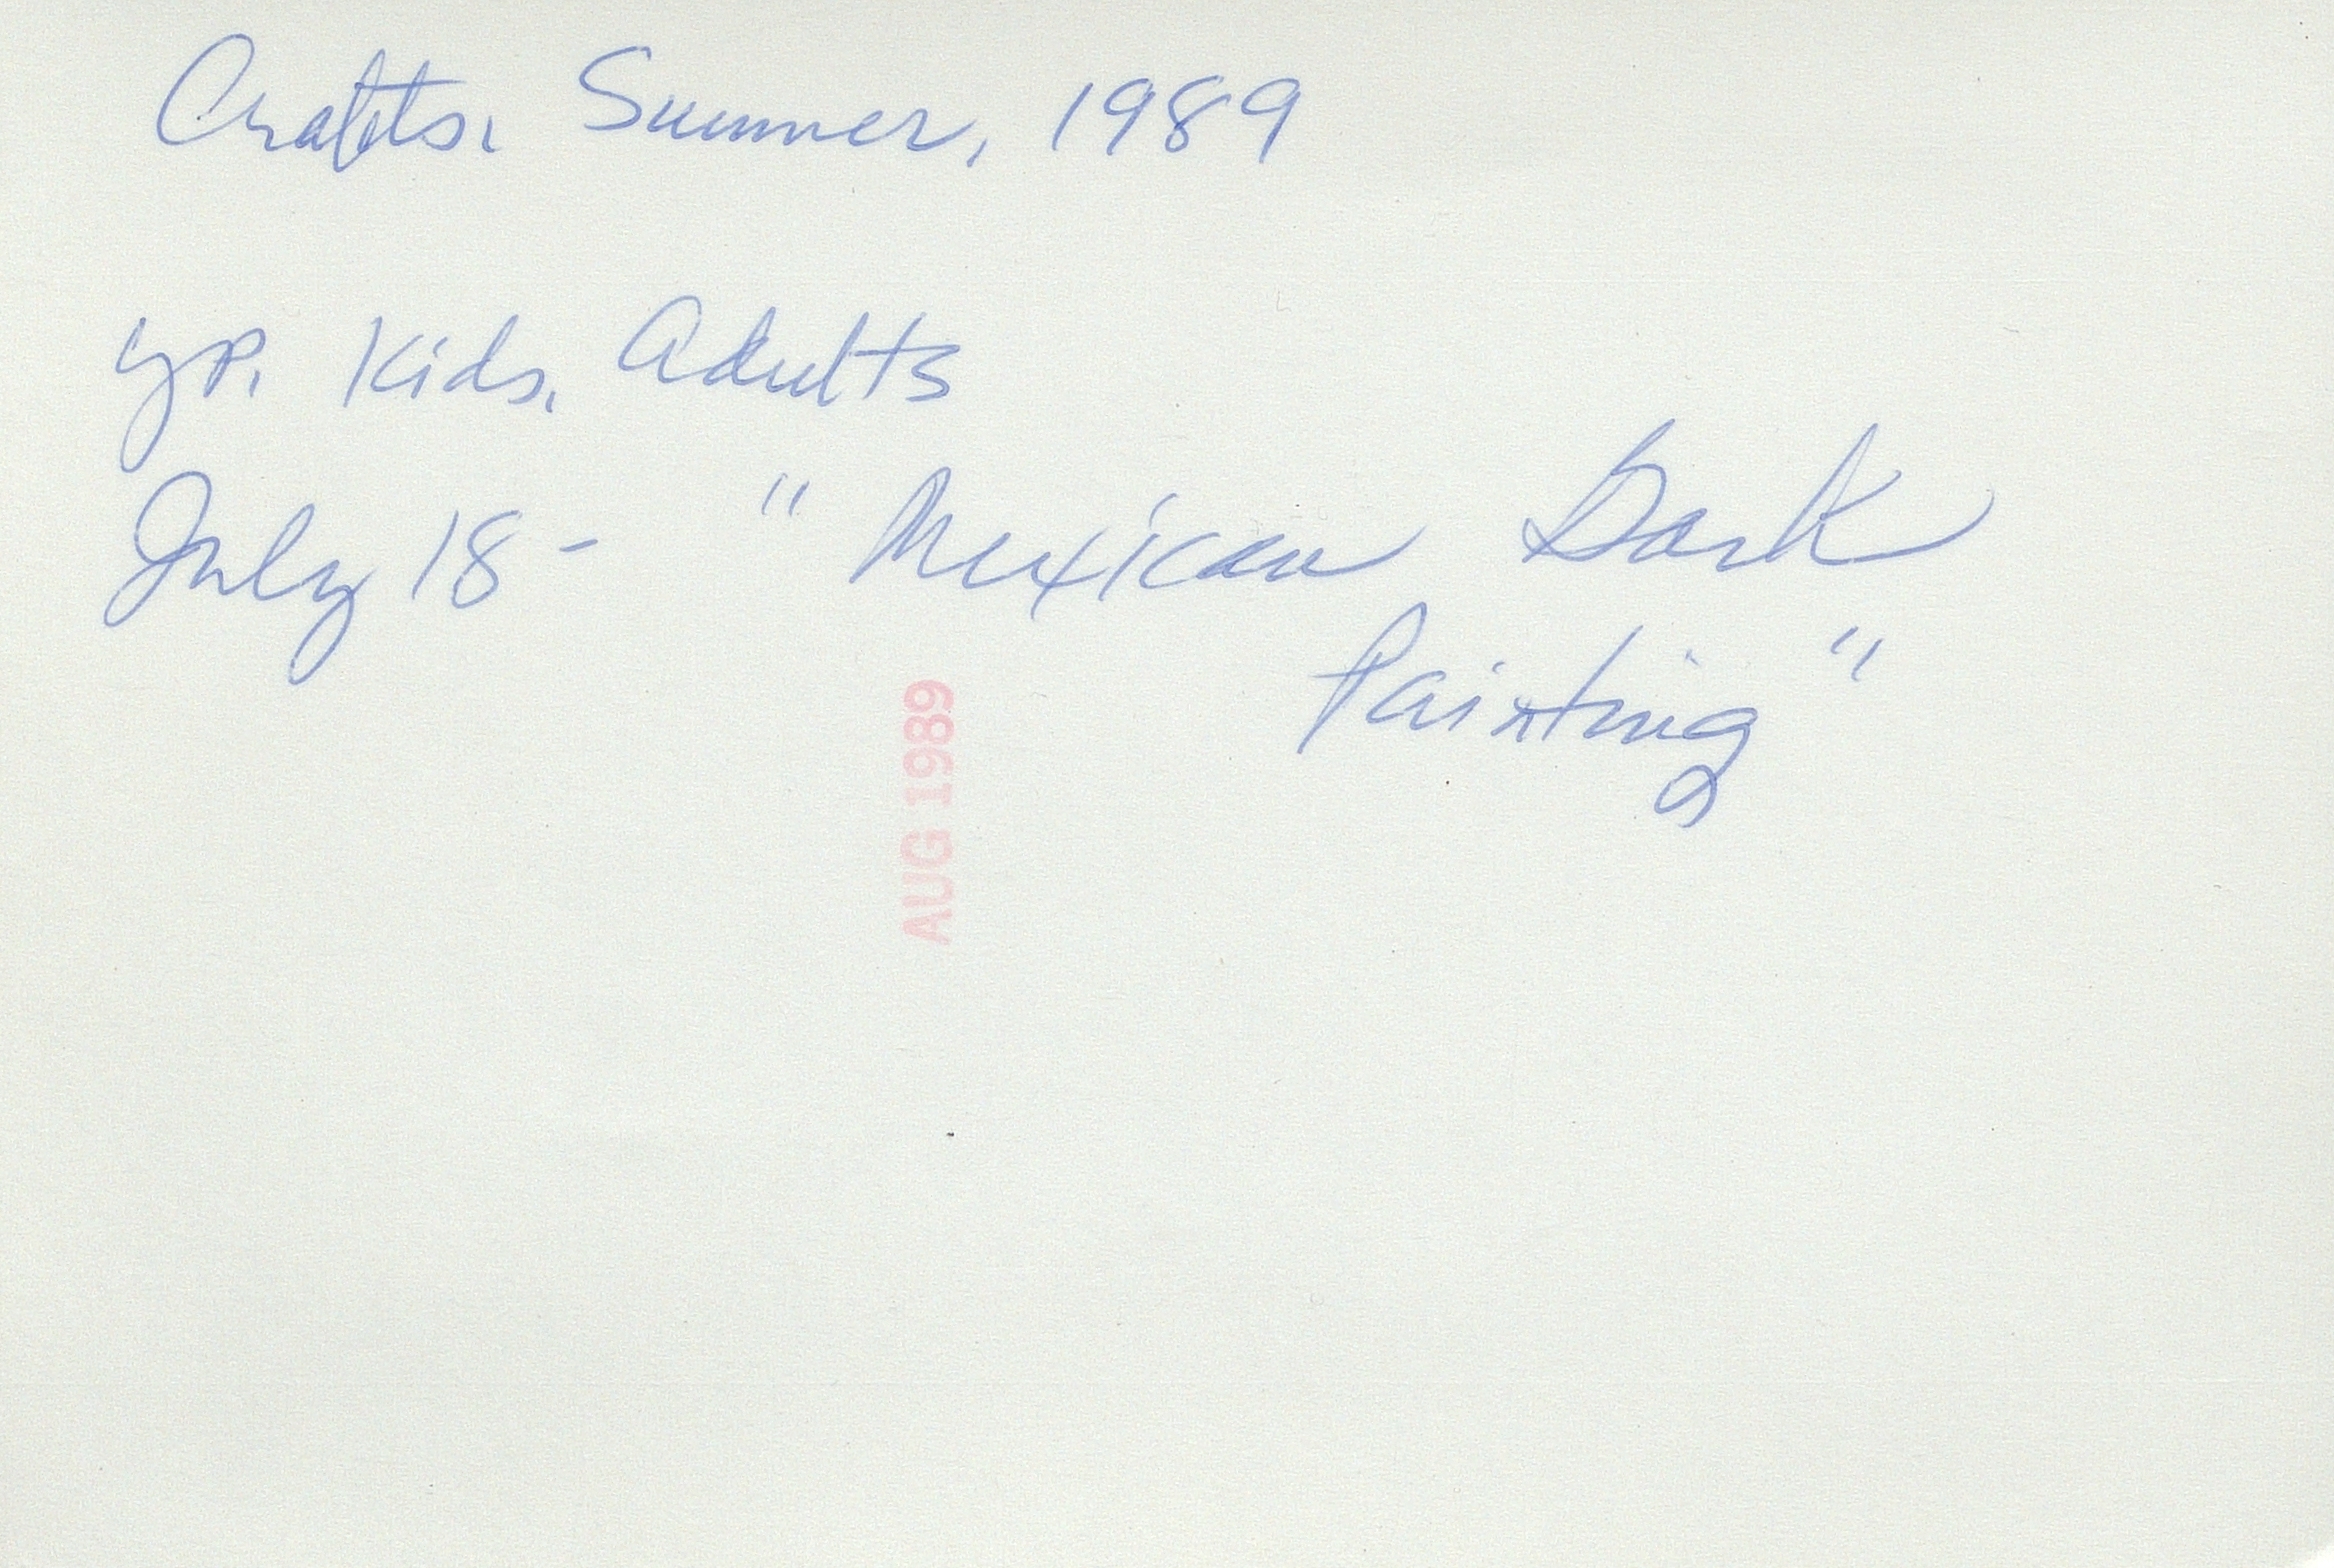 Crafts. Summer, 1989
YP. Kids. Adults
July 18 - "Mexican Bark
Painting"
AUG 1989